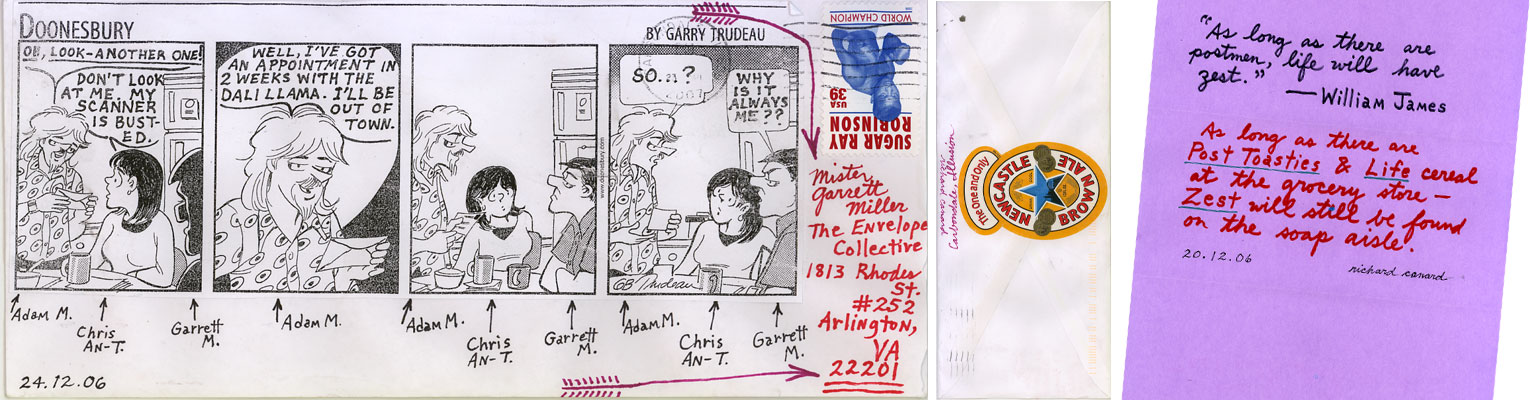 DOONESBURY
BY GARRY TRUDEAU
OH, LOOK-ANOTHER ONE!
DON'T LOOK
AT ME. MY
SCANNER
IS BUST-
ED.
WELL, I'VE GOT
AN APPOINTMENT IN
2 WEEKS WITH THE
DALI LLAMA. I'LL BE
OUT OF
TOWN.
SO..?
WHY
IS IT
ALWAYS
ME??
GB Trudeau
Adam M.
Chris
AN-T.
Garrett
M.
Adam M.
Adam M.
Chris
AN-T.
Garrett
M.
Adam M.
Chris
AN-T.
Garrett
M.
24.12.06
WORLD CHAMPION
USA
39
SUGAR RAY
ROBINSON
Mister
Garrett
Miller
The Envelope
Collective
1813 Rhodes
St.
#252
Arlington,
VA
22201
Carbondale, Illusion
The One and Only
NEWCASTLE
BROWN ALE
"As long as there are
postmen, life will have
zest."
—William James
As long as there are
Post Toasties & Life cereal
at the grocery store —
Zest will still be found
on the soap aisle.
20.12.06
richard canard